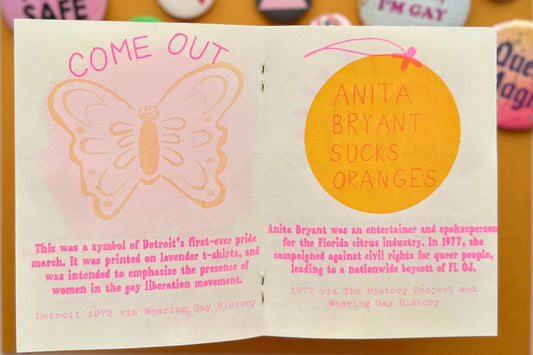 SAFE
I'M GAY
Magi
COME OUT
This was a symbol of Detroit's first-ever pride
march. It was printed on lavender t-shirts, and
was intended to emphasize the presence of
women in the gay liberation movement.
Detroit 1972 via Wearing Gay History
ANITA
BRYANT
SUCKS
ORANGES
Anita Bryant was an entertainer and spokesperson
for the Florida citrus industry. In 1977, she
campaigned against civil rights for queer people,
leading to a nationwide boycott of FL OJ.
1977 via The History Project and
Wearing Gay History